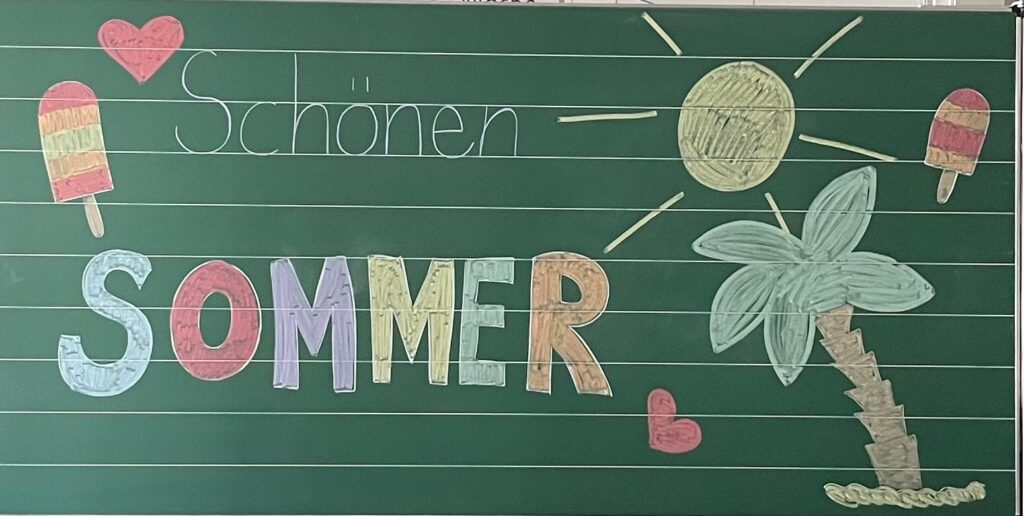 Schönen
SOMMER